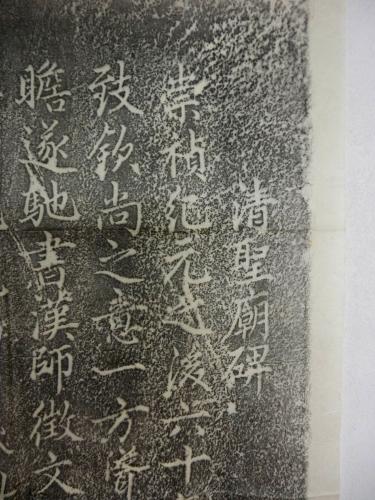 清聖廟碑
崇禎紀元之後六十
致欽尚之意一方
瞻遂馳書漢師徵文